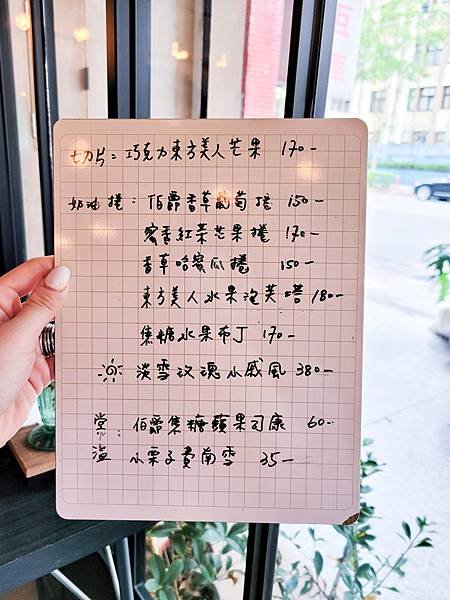 切片：巧克力東方美人芒果 170-
奶油捲：伯爵香草葡萄捲 150-
蜜香紅茶芒果捲 170-
香草哈密瓜捲 150-
東方美人水果泡芙塔 180-
焦糖水果布丁 170-
淡雪玫瑰小戚風 380-
常溫：伯爵焦糖蘋果司康 60-
小栗子費南雪 35-